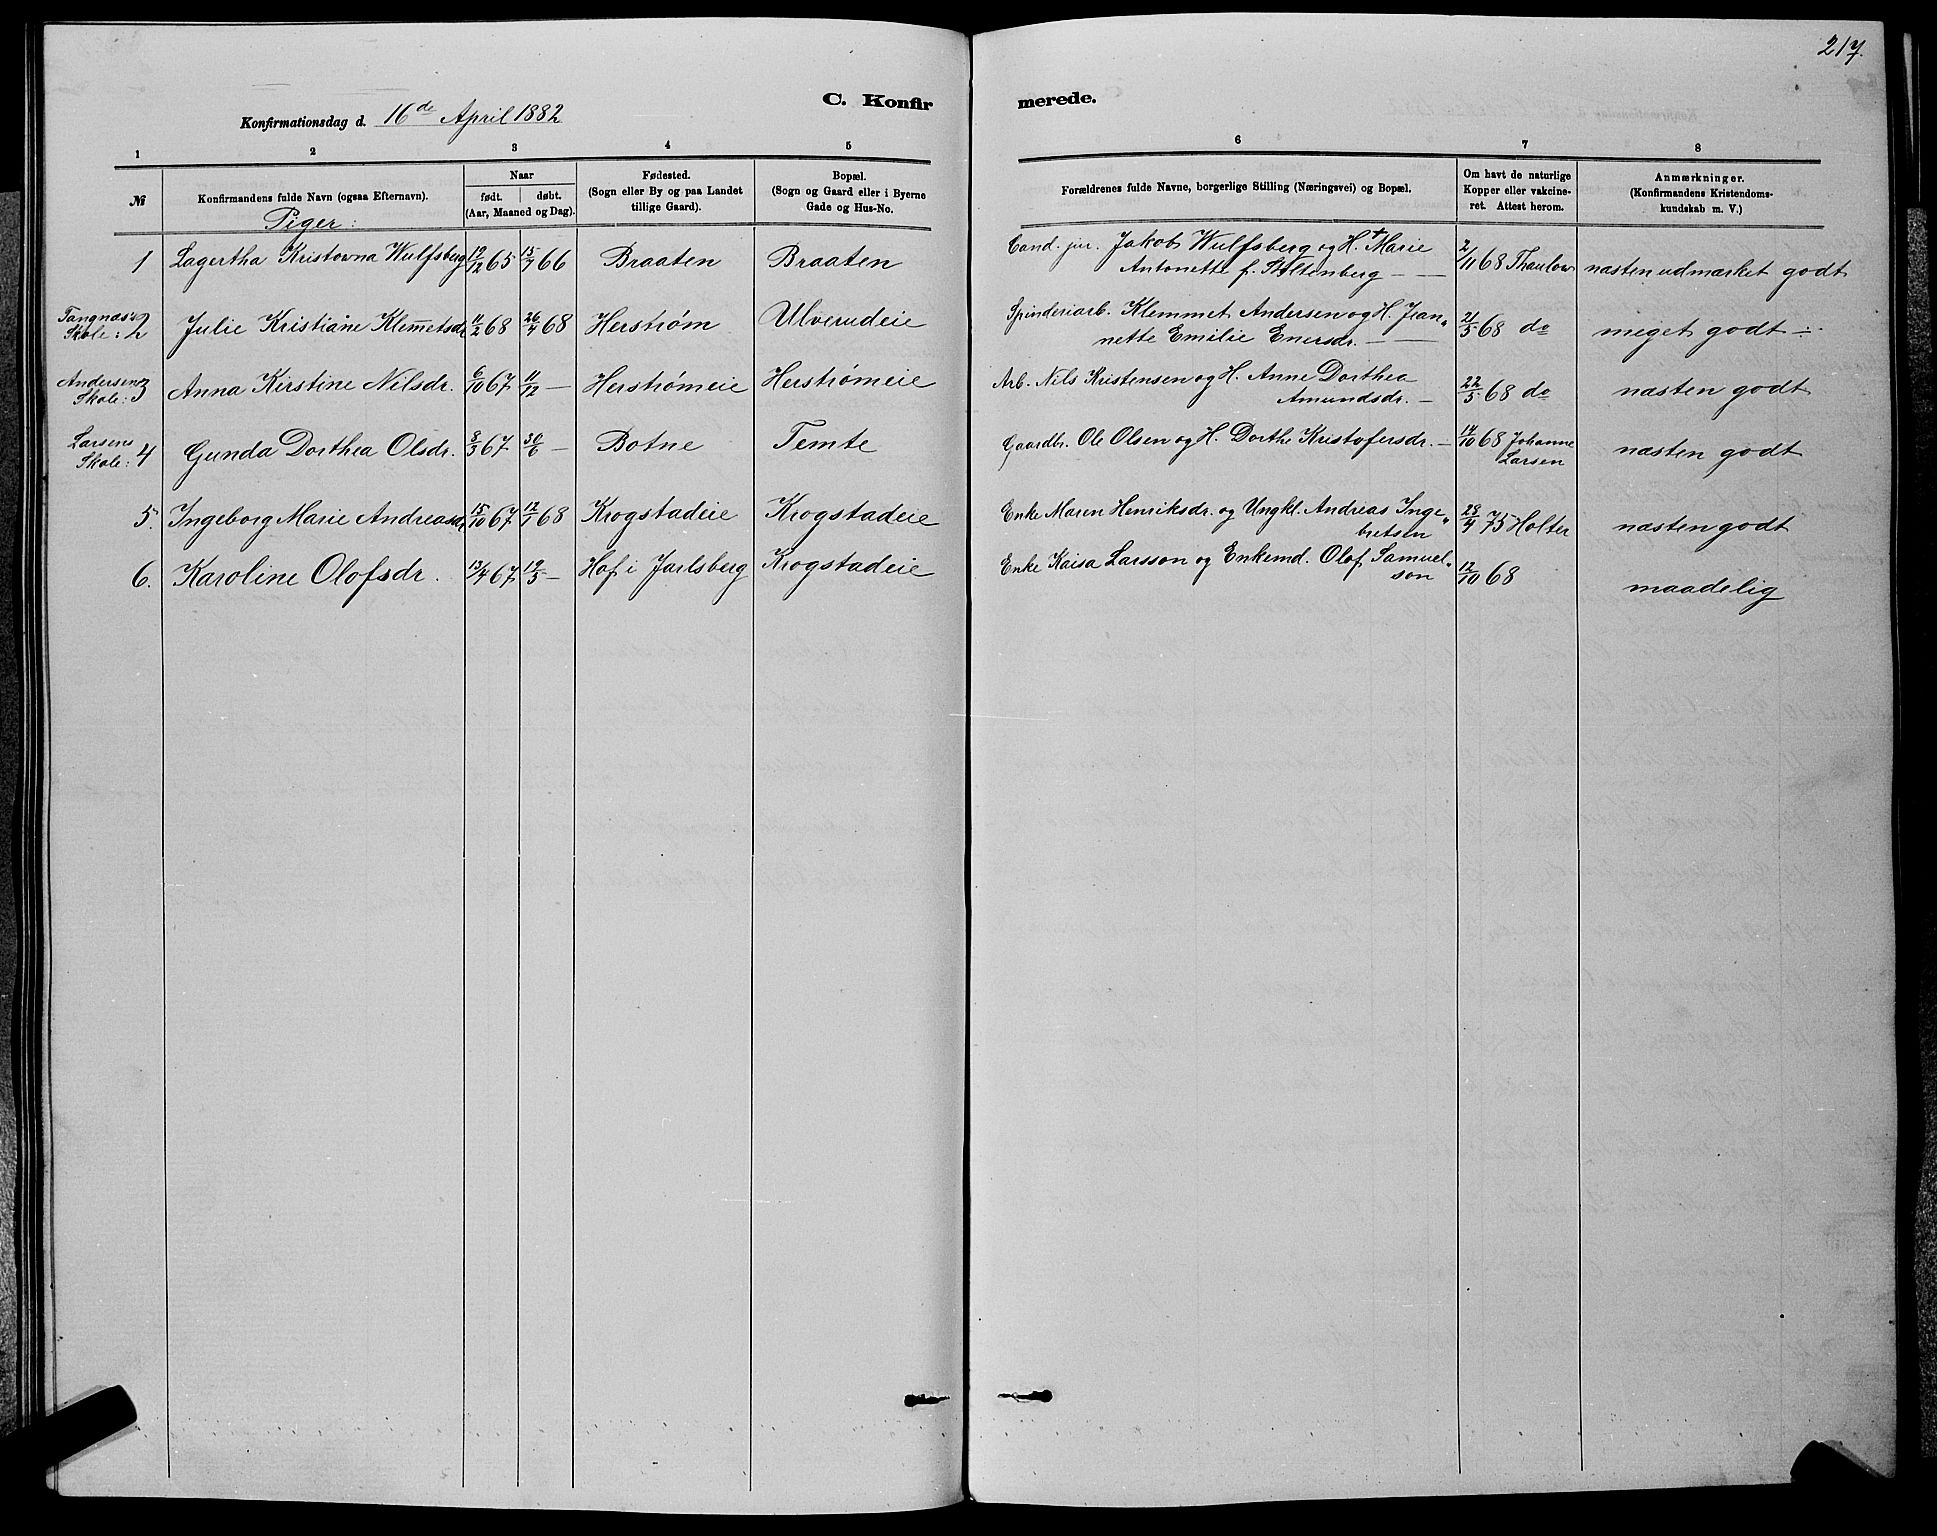 217.
C. Konfir merede.
Konfirmationsdag d. 16de April 1882
1 2 3 4 5 6 7 8
№ Konfirmandens fulde Navn (ogsaa Efternavn). Naar født. døbt. (Aar, Maaned og Dag). Fødested. (Sogn eller By og paa Landet tillige Gaard). Bopæl. (Sogn og Gaard eller i Byerne Gade og Hus-No. Forældrenes fulde Navne, borgerlige Stilling (Næringsvei) og Bopæl. Om havt de naturlige Kopper eller vakcineret. Attest herom. Anmærkninger. (Konfirmandens Kristendomskundskab m. V.)
Piger:
1 Lagertha Kristovna Wulfsberg 19/12 65 15/7 66 Braaten Braaten Cand. jur. Jakob Wulfsberg og H. + Marie 2/11 68 Thaulow næsten udmærket godt
Antonette f. Stoltenberg — —
Tangnæs's Skole: 2 Julie Kristiane Klem̅etsdr. 11/2 68 26/4 68 Herstrøm Ulverudeie Spinderiarb. Klemmet Andersen og H. Jean- 21/5 68 do meget godt ÷
nette Emilie Enersdr. — —
Andersens Skole: 3 Anna Kirstine Nilsdr. 6/10 67 11/12 — Herstrømeie Herstrømeie Arb. Nils Kristensen og H. Anne Dorthea 22/5 68 do næsten godt
Amundsdr. —
Larsens Skole: 4 Gunda Dorthea Olsdr. 8/3 67 30/6 — Botne Temte Gaardbr. Ole Olsen og H. Dorthe Kristofersdr. — 14/10 68 Johanne Larsen næsten godt
5. Ingeborg Marie Andreasdr. 15/10 67 12/1 68 Krogstadeie Krogstadeie Enke Maren Henriksdr. og Ungkl. Andreas Inge- 28/4 75 Holter næsten godt
bretsen
6. Karoline Olofsdr. 13/4 67 19/5 — Hof i Jarlsberg Krogstadeie Enke Kaisa Larsson og Enkemd. Olof Samuel- 12/10 68 maadelig
son